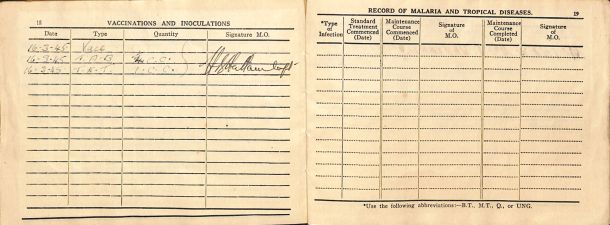 18 VACCINATIONS AND INOCULATIONS
Date Type Quantity Signature M.O.
16-3-45 Vacc
16-3-45 T.A.B. C.C.
16-3-45 T.A.T. 1.C.C.
RECORD OF MALARIA AND TROPICAL DISEASES. 19
*Type of Infection
Standard Treatment Commenced (Date)
Maintenance Course Commenced (Date)
Signature of M.O.
Maintenance Course Completed (Date)
Signature of M.O.
*Use the following abbreviations:—B.T., M.T., Q., or UNG.